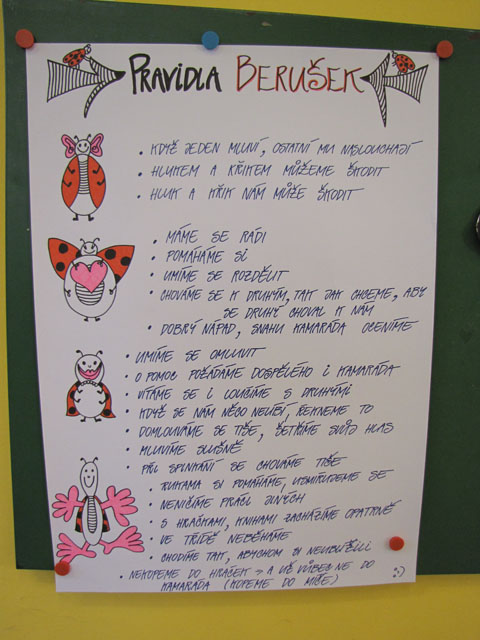 PRAVIDLA BERUŠEK
• KDYŽ JEDEN MLUVÍ, OSTATNÍ MU NASLOUCHAJÍ
• HLUKEM A KŘIKEM MŮŽEME ŠKODIT
• HLUK A KŘIK NÁM MŮŽE ŠKODIT
• MÁME SE RÁDI
• POMÁHÁME SI
• UMÍME SE ROZDĚLIT
• CHOVÁME SE K DRUHÝM, TAK JAK CHCEME, ABY
SE DRUHÝ CHOVAL K NÁM
• DOBRÝ NÁPAD, SNAHU KAMARÁDA OCENÍME
• UMÍME SE OMLUVIT
• O POMOC POŽÁDÁME DOSPĚLÉHO I KAMARÁDA
• VÍTÁME SE I LOUČÍME S DRUHÝMI
• KDYŽ SE NÁM NĚCO NELÍBÍ, ŘEKNEME TO
• DOMLOUVÁME SE TIŠE, ŠETŘÍME SVŮJ HLAS
• MLUVÍME SLUŠNĚ
• PŘI SPINKÁNÍ SE CHOVÁME TIŠE
• RUKAMA SI POMÁHÁME, USMIŘUJEME SE
• NENIČÍME PRÁCI JINÝCH
• S HRAČKAMI, KNIHAMI ZACHÁZÍME OPATRNĚ
• VE TŘÍDĚ NEBĚHÁME
• CHODÍME TAK, ABYCHOM SI NEUBLÍŽILI
• NEKOPEME DO HRAČEK → A UŽ VŮBEC NE DO
KAMARÁDA (KOPEME DO MÍČE) :-)